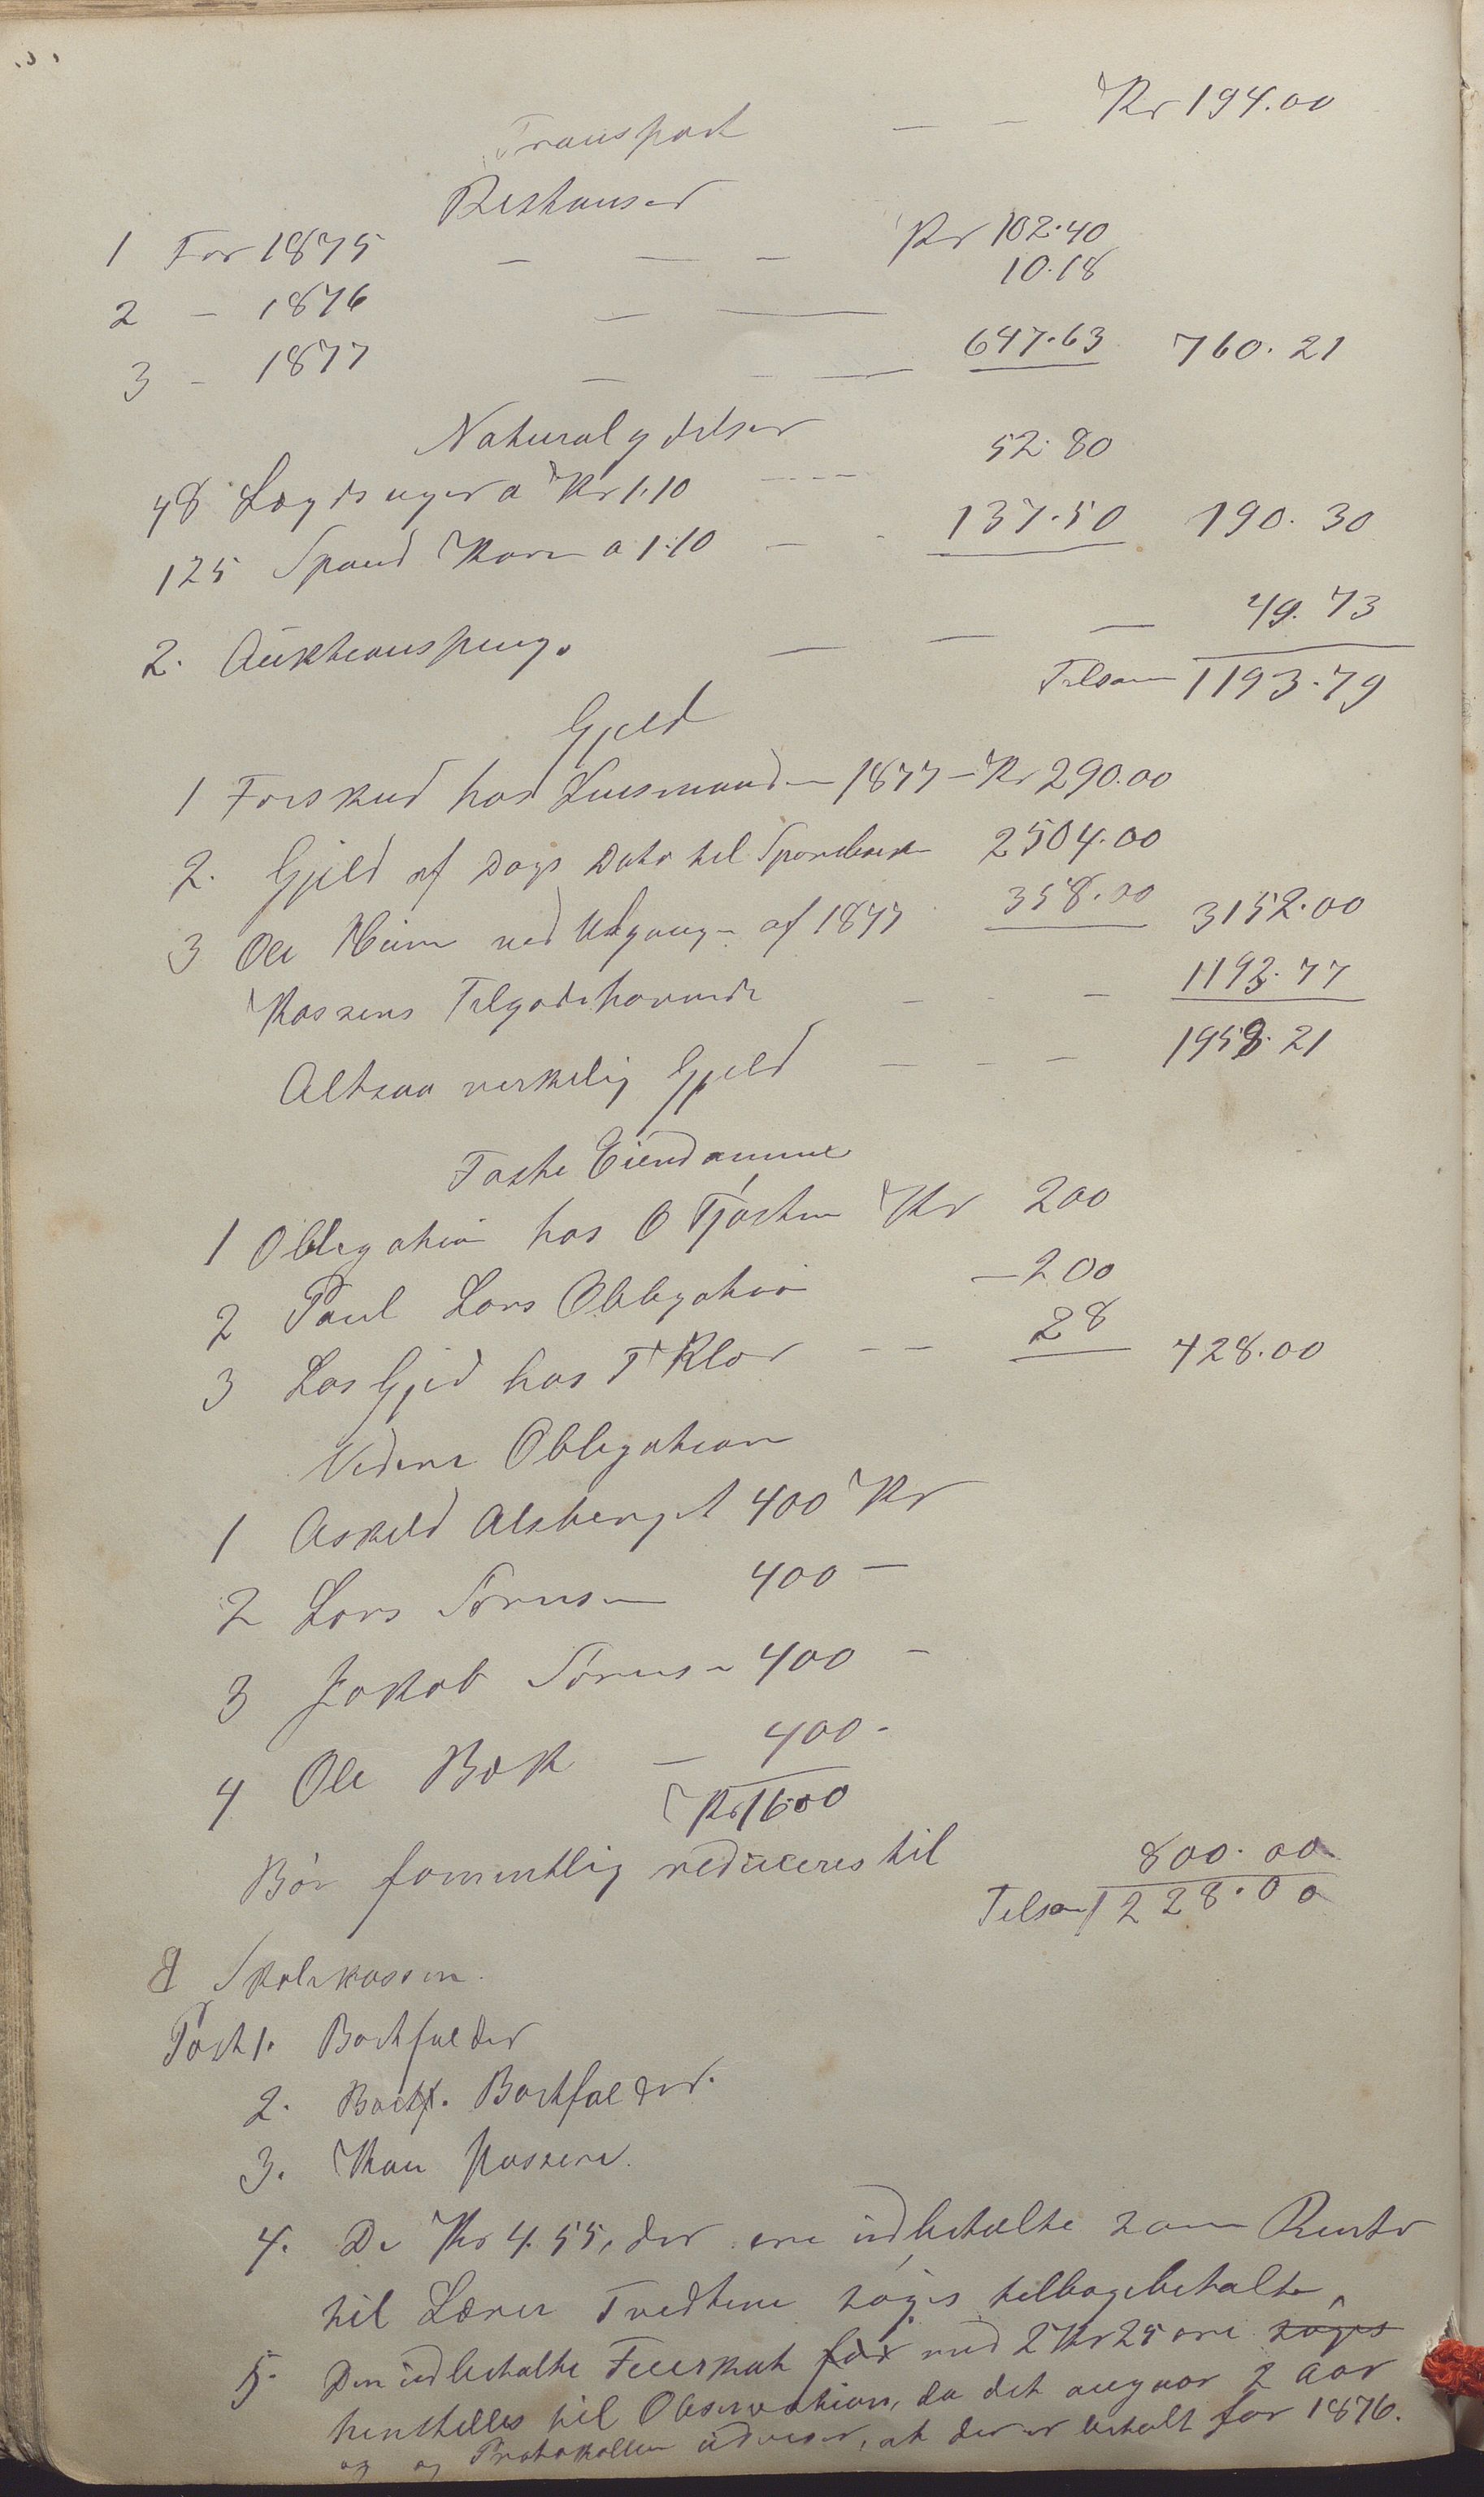 Transport — — Kr 194.00
Restanser
1 For 1875 — — — Kr 102.40
2 — 1876 — — 10.18
3 — 1877 — — — 647.63 760.21
Naturalydelser
48 Lægdsuger a Kr 1.10 --- 52.80
125 Spand Korn a 1.10 — - 137.50 190.30
2. Auktionspenge — — — 49.73
Tilsam 1193.79
Gjeld
1 Forskud hos Lensmanden 1877 — Kr 290.00
2. Gjeld af Dags Dato til Sparebank 2504.00
3 Ole Heim ved Udgangen af 1877 358.00 3152.00
Kassens Tilgodehavende — - — 1193.77
Altsaa verkelig Gjeld — - — 1958.21
Faste Eiendomme
1 Obligation hos O Tjøsten Kr 200
2 Paul Lars Obligation — 200
3 Løs Gjed hos T Klev — — 28 428.00
Videre Obligation
1 Askild Alsberget 400 Kr
2 Lars Sørensen 400 —
3 Jakob Sørensen 400 —
4 Ole Bæk — 400 -
Kr 1600
Bør formentlig reduceres til 800.00
Tilsam 1228.00
Skolekassen.
Post 1. Bortfalder
2. Bortf. Bortfalder.
3. Kan passere.
4. De Kr 4.55, der ere udbetalte som Renter
til Lærer Tvedtene søges tilbagebetalte,
5. Den udbetalte Feeskat før med 2 Kr 25 øre søges
henstilles til Observation, da det angaar 2 Aar
og og Protokollen udviser, at der er betalt for 1876.